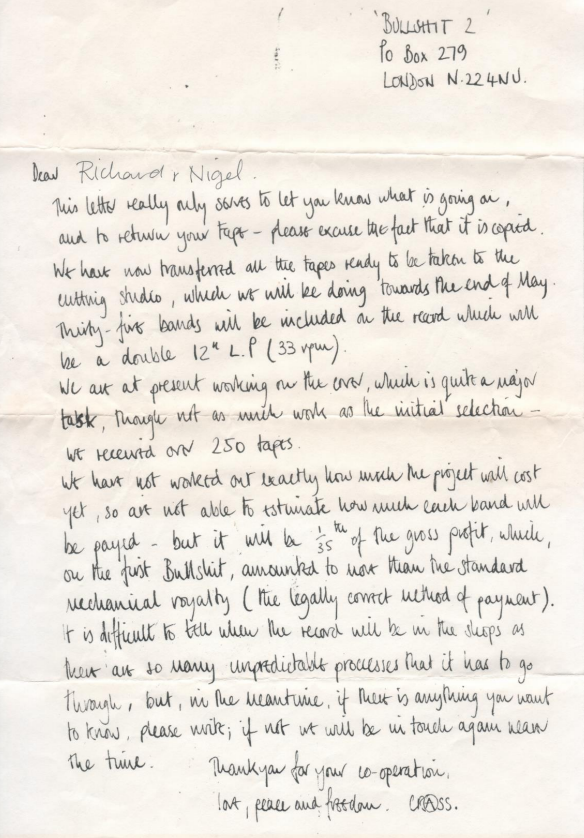 'BULLSHIT 2'
PO BOX 279
LONDON N.22 4NU.
Dear Richard & Nigel.
This letter really only serves to let you know what is going on,
and to return your tape – please excuse the fact that it is copied.
We have now transferred all the tapes ready to be taken to the
cutting studio, which we will be doing towards the end of May.
Thirty-five bands will be included on the record which will
be a double 12" L.P (33 rpm).
We are at present working on the cover, which is quite a major
task, though not as much work as the initial selection –
we received over 250 tapes.
We have not worked out exactly how much the project will cost
yet, so are not able to estimate how much each band will
be payed – but it will be 1/35th of the gross profit, which,
on the first Bullshit, amounted to more than the standard
mechanical royalty (the legally correct method of payment).
It is difficult to tell when the record will be in the shops as
there are so many unpredictable processes that it has to go
through, but, in the meantime, if there is anything you want
to know, please write; if not we will be in touch again near
the time.
Thankyou for your co-operation,
love, peace and freedom. CRASS.